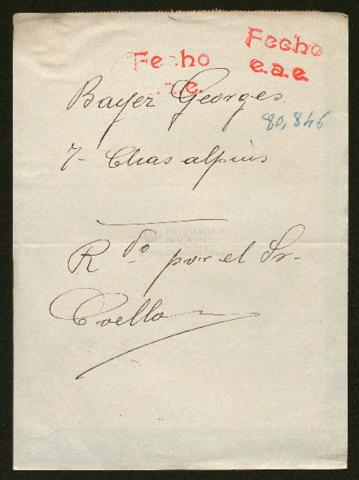 Fecho
e.
Fecho
e.a.e
Bayer Georges
80,846
7- Chas alpins
PATRIMONIO
NACIONAL
Rdo por el Sr.
Coello